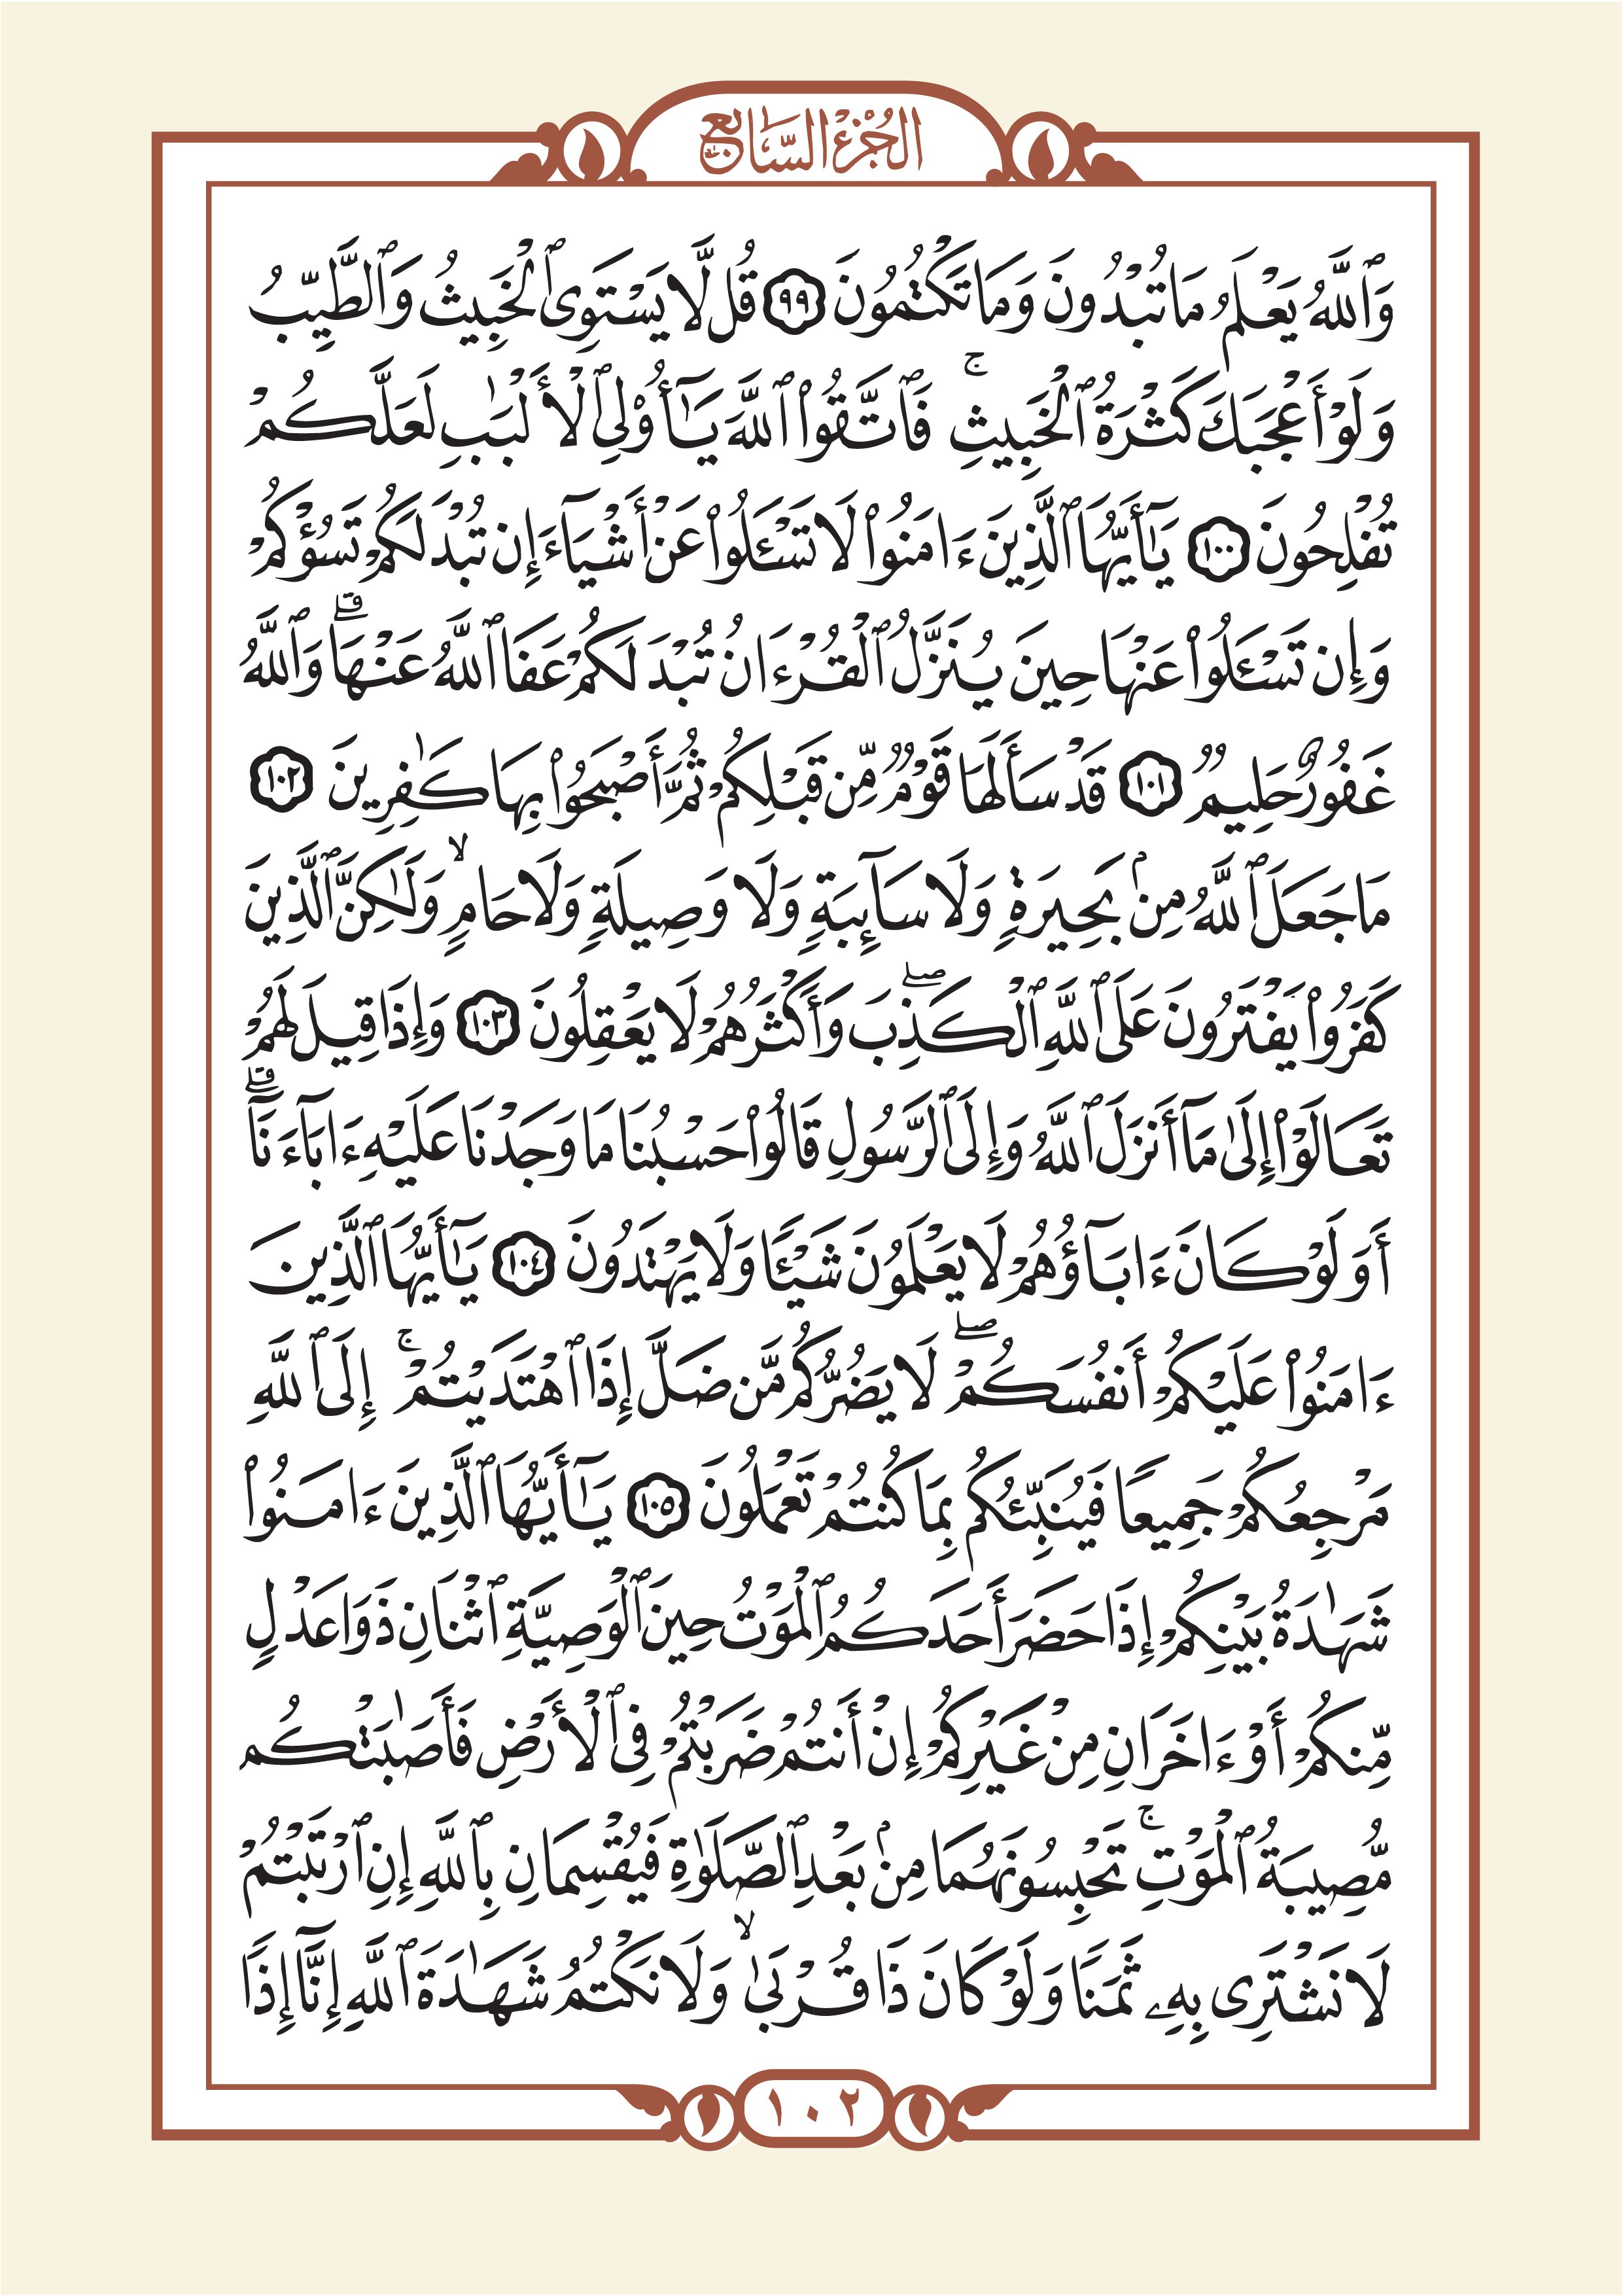 الجُزْءُ السَّابِعُ
وَٱللَّهُ يَعْلَمُ مَا تُبْدُونَ وَمَا تَكْتُمُونَ ٩٩ قُل لَّا يَسْتَوِى ٱلْخَبِيثُ وَٱلطَّيِّبُ
وَلَوْ أَعْجَبَكَ كَثْرَةُ ٱلْخَبِيثِ ۚ فَٱتَّقُوا۟ ٱللَّهَ يَـٰٓأُو۟لِى ٱلْأَلْبَـٰبِ لَعَلَّكُمْ
تُفْلِحُونَ ١٠٠ يَـٰٓأَيُّهَا ٱلَّذِينَ ءَامَنُوا۟ لَا تَسْـَٔلُوا۟ عَنْ أَشْيَآءَ إِن تُبْدَ لَكُمْ تَسُؤْكُمْ
وَإِن تَسْـَٔلُوا۟ عَنْهَا حِينَ يُنَزَّلُ ٱلْقُرْءَانُ تُبْدَ لَكُمْ عَفَا ٱللَّهُ عَنْهَا ۗ وَٱللَّهُ
غَفُورٌ حَلِيمٌ ١٠١ قَدْ سَأَلَهَا قَوْمٌ مِّن قَبْلِكُمْ ثُمَّ أَصْبَحُوا۟ بِهَا كَـٰفِرِينَ ١٠٢
مَا جَعَلَ ٱللَّهُ مِنۢ بَحِيرَةٍ وَلَا سَآئِبَةٍ وَلَا وَصِيلَةٍ وَلَا حَامٍ ۙ وَلَـٰكِنَّ ٱلَّذِينَ
كَفَرُوا۟ يَفْتَرُونَ عَلَى ٱللَّهِ ٱلْكَذِبَ ۖ وَأَكْثَرُهُمْ لَا يَعْقِلُونَ ١٠٣ وَإِذَا قِيلَ لَهُمْ
تَعَالَوْا۟ إِلَىٰ مَآ أَنزَلَ ٱللَّهُ وَإِلَى ٱلرَّسُولِ قَالُوا۟ حَسْبُنَا مَا وَجَدْنَا عَلَيْهِ ءَابَآءَنَآ ۗ
أَوَلَوْ كَانَ ءَابَآؤُهُمْ لَا يَعْلَمُونَ شَيْـًٔا وَلَا يَهْتَدُونَ ١٠٤ يَـٰٓأَيُّهَا ٱلَّذِينَ
ءَامَنُوا۟ عَلَيْكُمْ أَنفُسَكُمْ ۖ لَا يَضُرُّكُم مَّن ضَلَّ إِذَا ٱهْتَدَيْتُمْ ۚ إِلَى ٱللَّهِ
مَرْجِعُكُمْ جَمِيعًا فَيُنَبِّئُكُم بِمَا كُنتُمْ تَعْمَلُونَ ١٠٥ يَـٰٓأَيُّهَا ٱلَّذِينَ ءَامَنُوا۟
شَهَـٰدَةُ بَيْنِكُمْ إِذَا حَضَرَ أَحَدَكُمُ ٱلْمَوْتُ حِينَ ٱلْوَصِيَّةِ ٱثْنَانِ ذَوَا عَدْلٍ
مِّنكُمْ أَوْ ءَاخَرَانِ مِنْ غَيْرِكُمْ إِنْ أَنتُمْ ضَرَبْتُمْ فِى ٱلْأَرْضِ فَأَصَـٰبَتْكُم
مُّصِيبَةُ ٱلْمَوْتِ ۚ تَحْبِسُونَهُمَا مِنۢ بَعْدِ ٱلصَّلَوٰةِ فَيُقْسِمَانِ بِٱللَّهِ إِنِ ٱرْتَبْتُمْ
لَا نَشْتَرِى بِهِۦ ثَمَنًا وَلَوْ كَانَ ذَا قُرْبَىٰ ۙ وَلَا نَكْتُمُ شَهَـٰدَةَ ٱللَّهِ إِنَّآ إِذًا
١٠٢